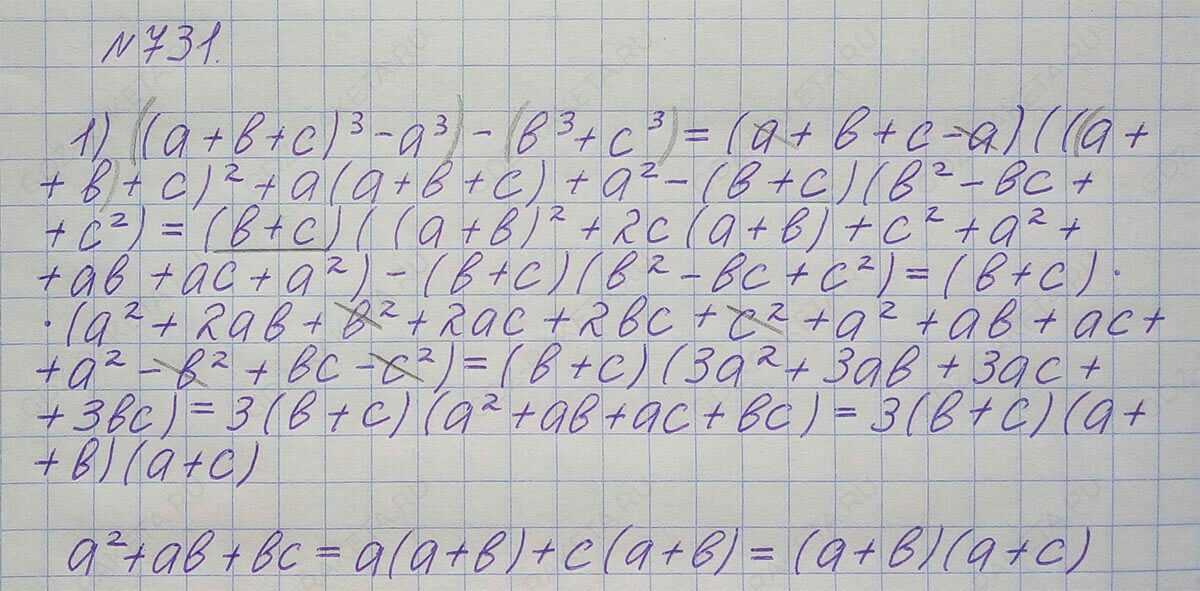 №731.
1) ((a+b+c)³-a³)-(b³+c³)=(a+b+c-a)(((a+
+b)+c)²+a(a+b+c)+a²-(b+c)(b²-bc+
+c²)=(b+c)((a+b)²+2c(a+b)+c²+a²+
+ab+ac+a²)-(b+c)(b²-bc+c²)=(b+c)·
·(a²+2ab+b²+2ac+2bc+c²+a²+ab+ac+
+a²-b²+bc-c²)=(b+c)(3a²+3ab+3ac+
+3bc)=3(b+c)(a²+ab+ac+bc)=3(b+c)(a+
+b)(a+c)
a²+ab+bc=a(a+b)+c(a+b)=(a+b)(a+c)